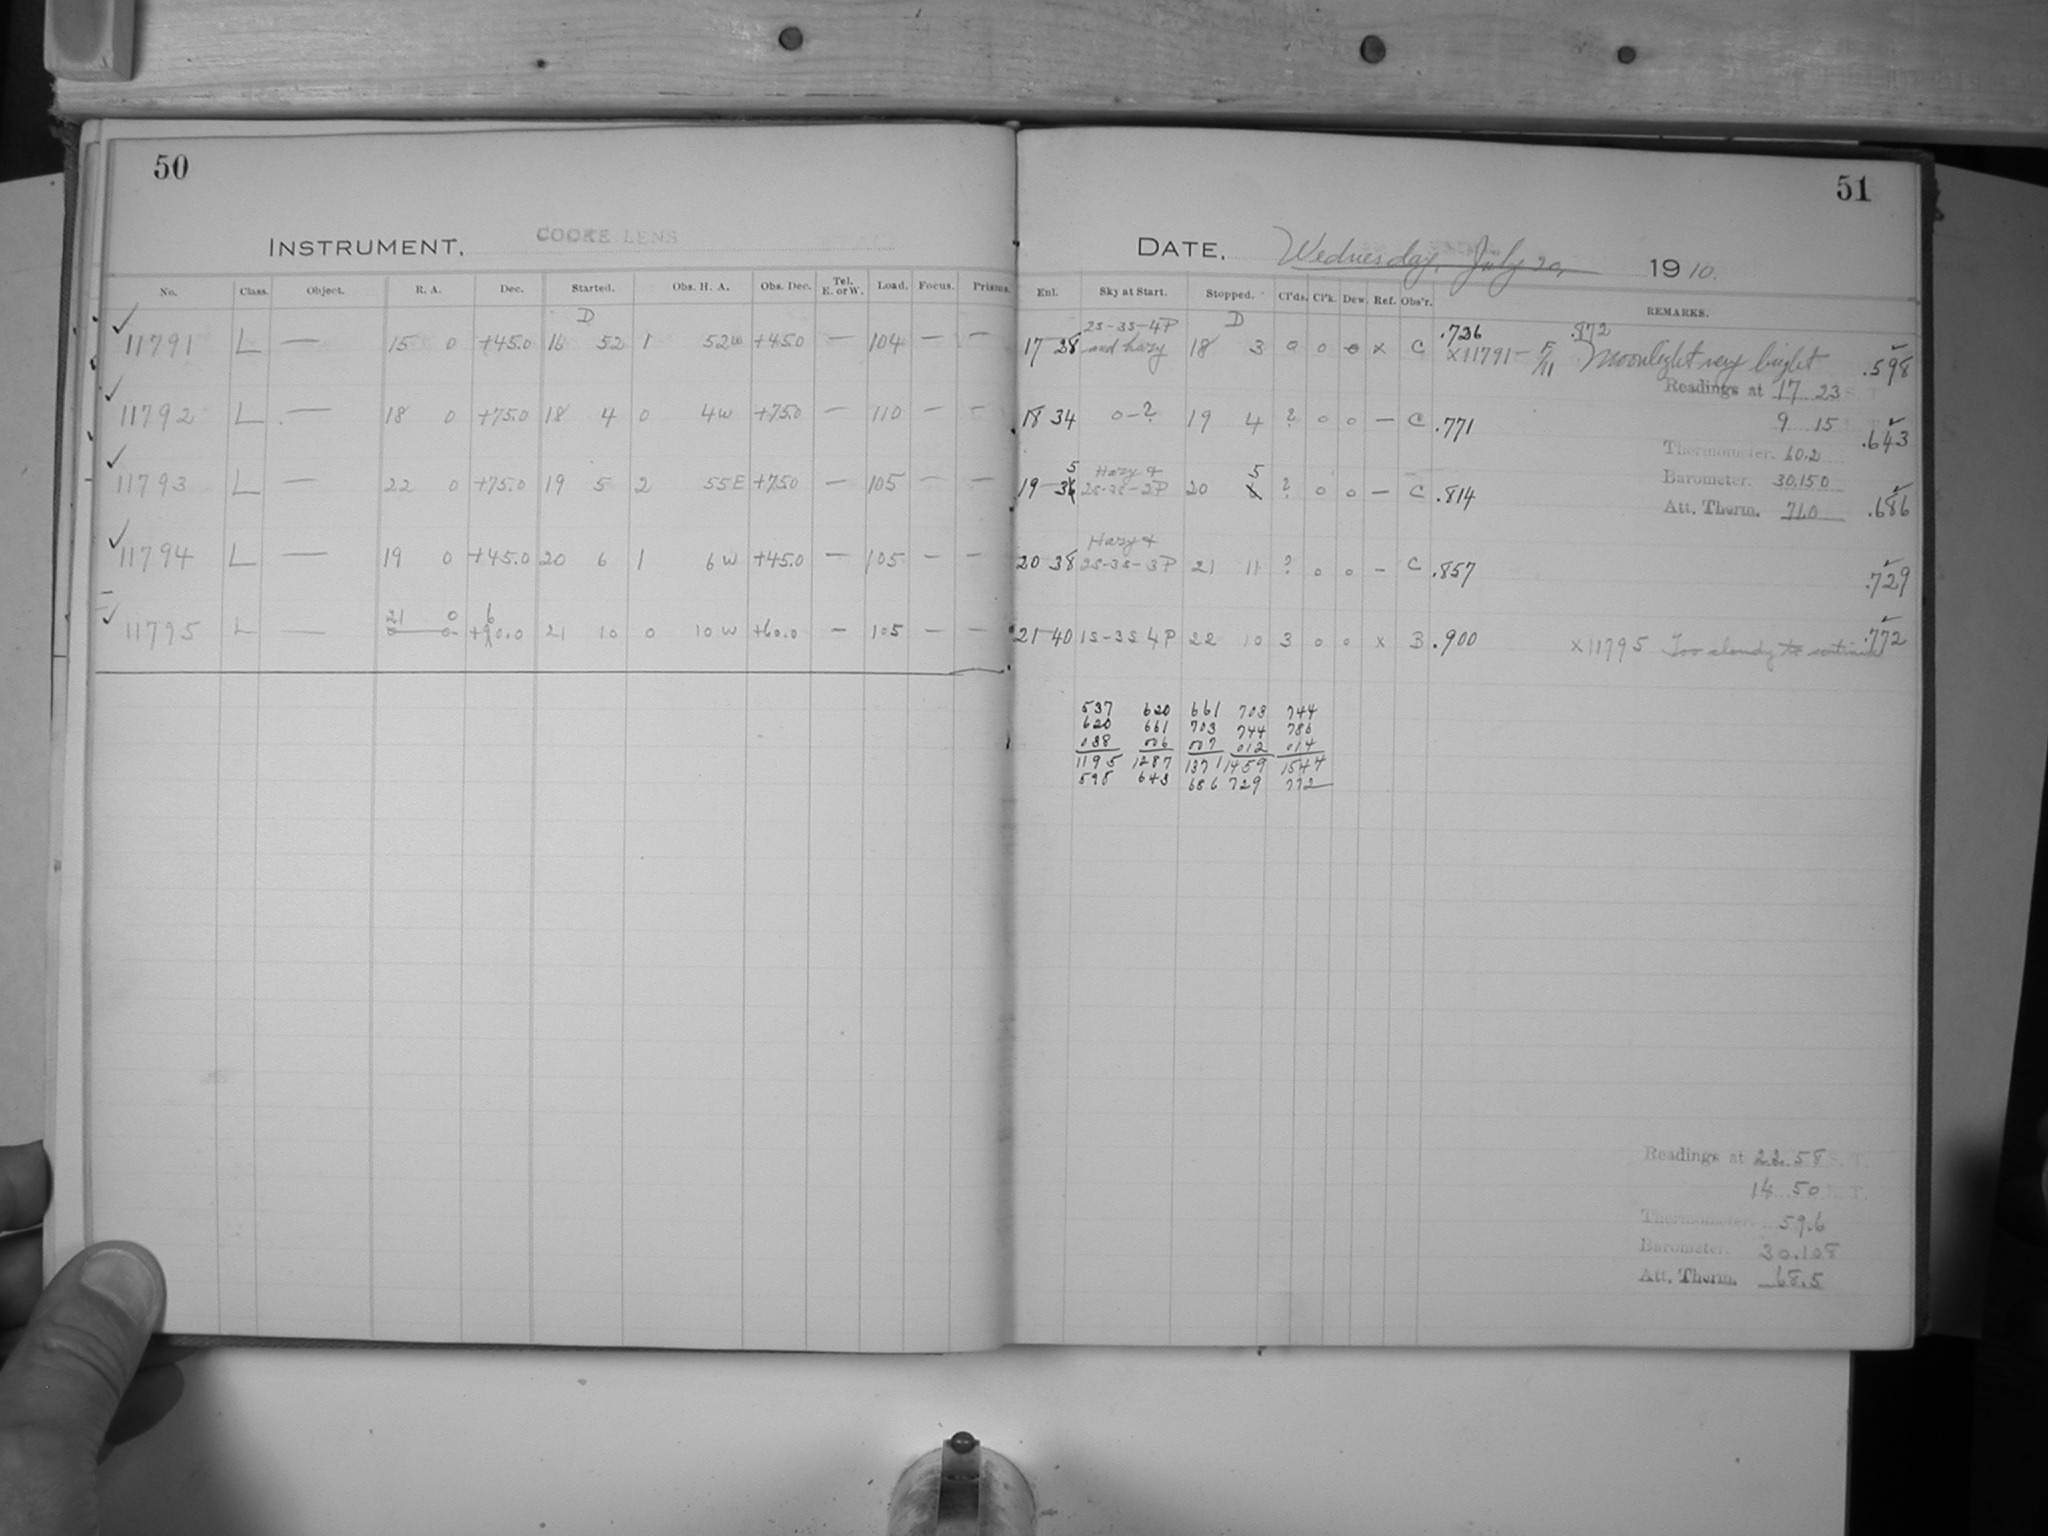 50
INSTRUMENT. COOKE LENS
No. Class. Object. R. A. Dec. Started. Obs. H. A. Obs. Dec. Tel. E. or W. Load. Focus. Prisms.
D
✓ 11791 L — 15 0 +45.0 16 52 1 52w +45.0 — 104 — —
✓ 11792 L — 18 0 +75.0 18 4 0 4w +75.0 — 110 — —
✓ 11793 L — 22 0 +75.0 19 5 2 55E +75.0 — 105 — —
✓ 11794 L — 19 0 +45.0 20 6 1 6w +45.0 — 105 — —
21 0 6
✓ 11795 L — 0 0 +90.0 21 10 0 10w +60.0 — 105 — —
51
DATE. Wednesday, July 20, 1910.
Enl. Sky at Start. Stopped. Cl'ds. Cl'k. Dew. Ref. Obs'r. REMARKS.
2S-3S-4P D .726 .872
17 28 and hazy 18 3 0 0 0 x C x11791- F/11 Moonlight very bright .598
Readings at 17 23 S. T.
18 34 0-? 19 4 ? 0 0 — C .771 9 15 .643
Thermometer. 60.2
5 Hazy + 5 Barometer. 30.150
19 36 2S-3S-2P 20 ? 0 0 — C .814 Att. Therm. 71.0 .686
Hazy +
20 38 2S-3S-3P 21 11 ? 0 0 — C .857 .729
21 40 1S-3S 4P 22 10 3 0 0 x B .900 x11795 Too cloudy to continue .772
537 620 661 703 744
620 661 703 744 786
038 006 007 012 014
1195 1287 1371 1459 1544
598 643 686 729 772
Readings at 22.58 S. T.
14 50 T.
Thermometer. 59.6
Barometer. 30.108
Att. Therm. 68.5